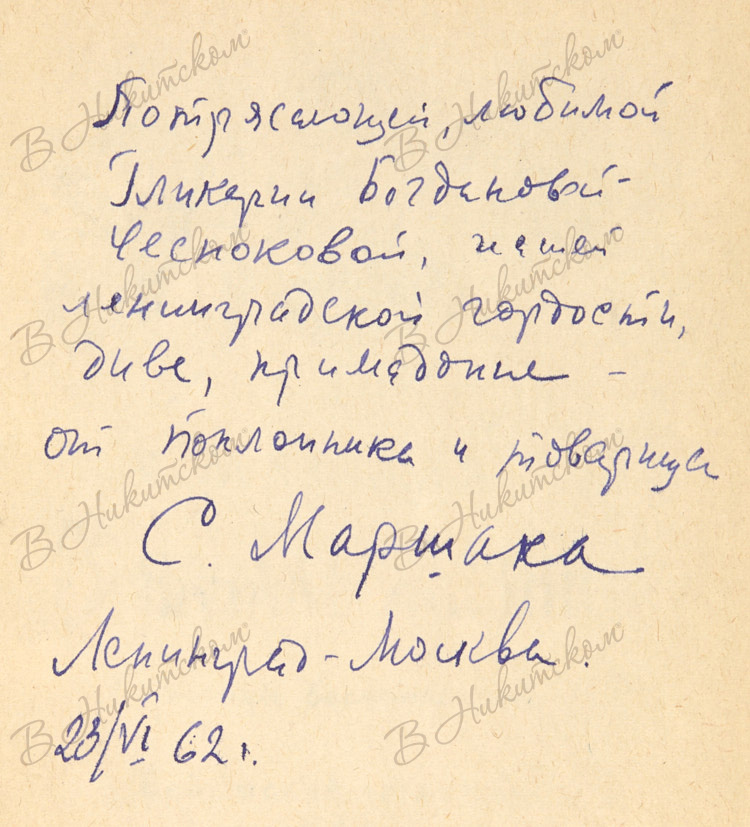 Потрясающей, любимой
Гликерии Богдановой-
Чесноковой, нашей
ленинградской гордости,
диве, примадонне –
от поклонника и товарища
С. Маршака
Ленинград-Москва.
23/VI 62 г.
В Никитском
В Никитском
В Никитском
В Никитском
В Никитском
В Никитском
В Никитском
В Никитском